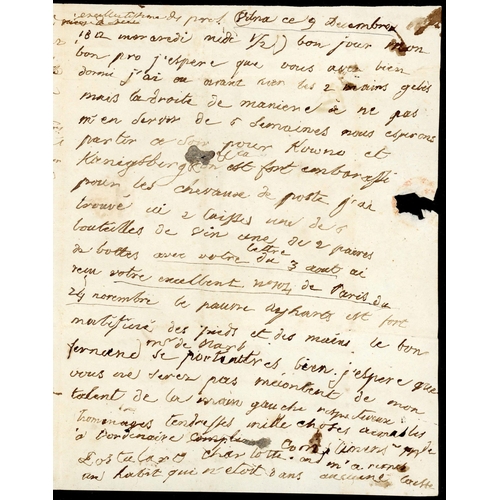 Vilna ce 9 Decembre
1812 mercredi midi 1/2)) bon jour mon
bon pro j'espere que vous avez bien
dormi j'ai eu avant hier les 2 mains gelés
mais la droite de maniere à ne pas
m'en servir de 5 semaines nous esperons
partir ce soir pour Kowno et
Kœnigsberg on est fort embarassé
pour les chevaux de poste j'ai
trouvé ici 2 caisses une de 6
bouteilles de vin une de 2 paires
de bottes avec votre lettre du 3 aout ai
reçu votre excellent nº 104 de Paris du
24 novembre le pauvre est fort
maltraité des pieds et des mains le bon
fernand se portent tres bien j'espere que
vous ne serez pas mecontent de mon
talent de la main gauche respectueux
hommages tendresses mille choses aimables
à l'ordinaire
Charlotte m'a remis
un habit qui n'etoit dans aucune caisse